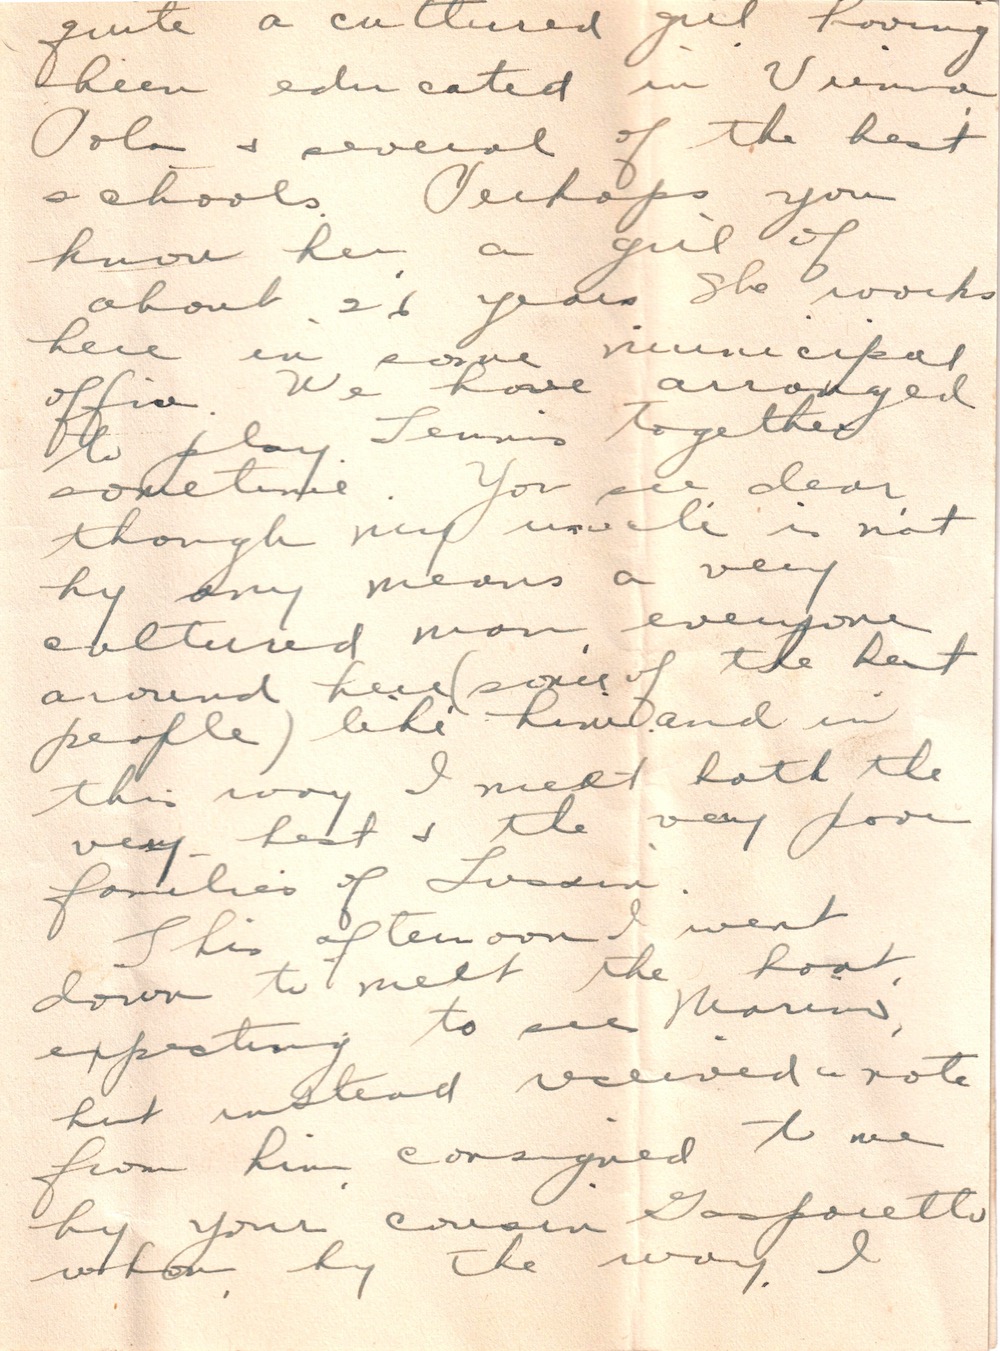 quite a cultured girl having
been educated in Vienna,
Pola & several of the best
schools. Perhaps you
know her, a girl of
about 26 years. She works
here in some municipal
office. We have arranged
to play Tennis together
sometime. You see, dear,
though my uncle is not
by any means a very
cultured man, everyone
around here (some of the best
people) like him and in
this way I meet both the
very best & the very poor
families of Lussin.
This afternoon I went
down to meet the boat,
expecting to see Marino,
but instead received a note
from him, consigned to me
by your cousin Gasparetto
whom, by the way, I